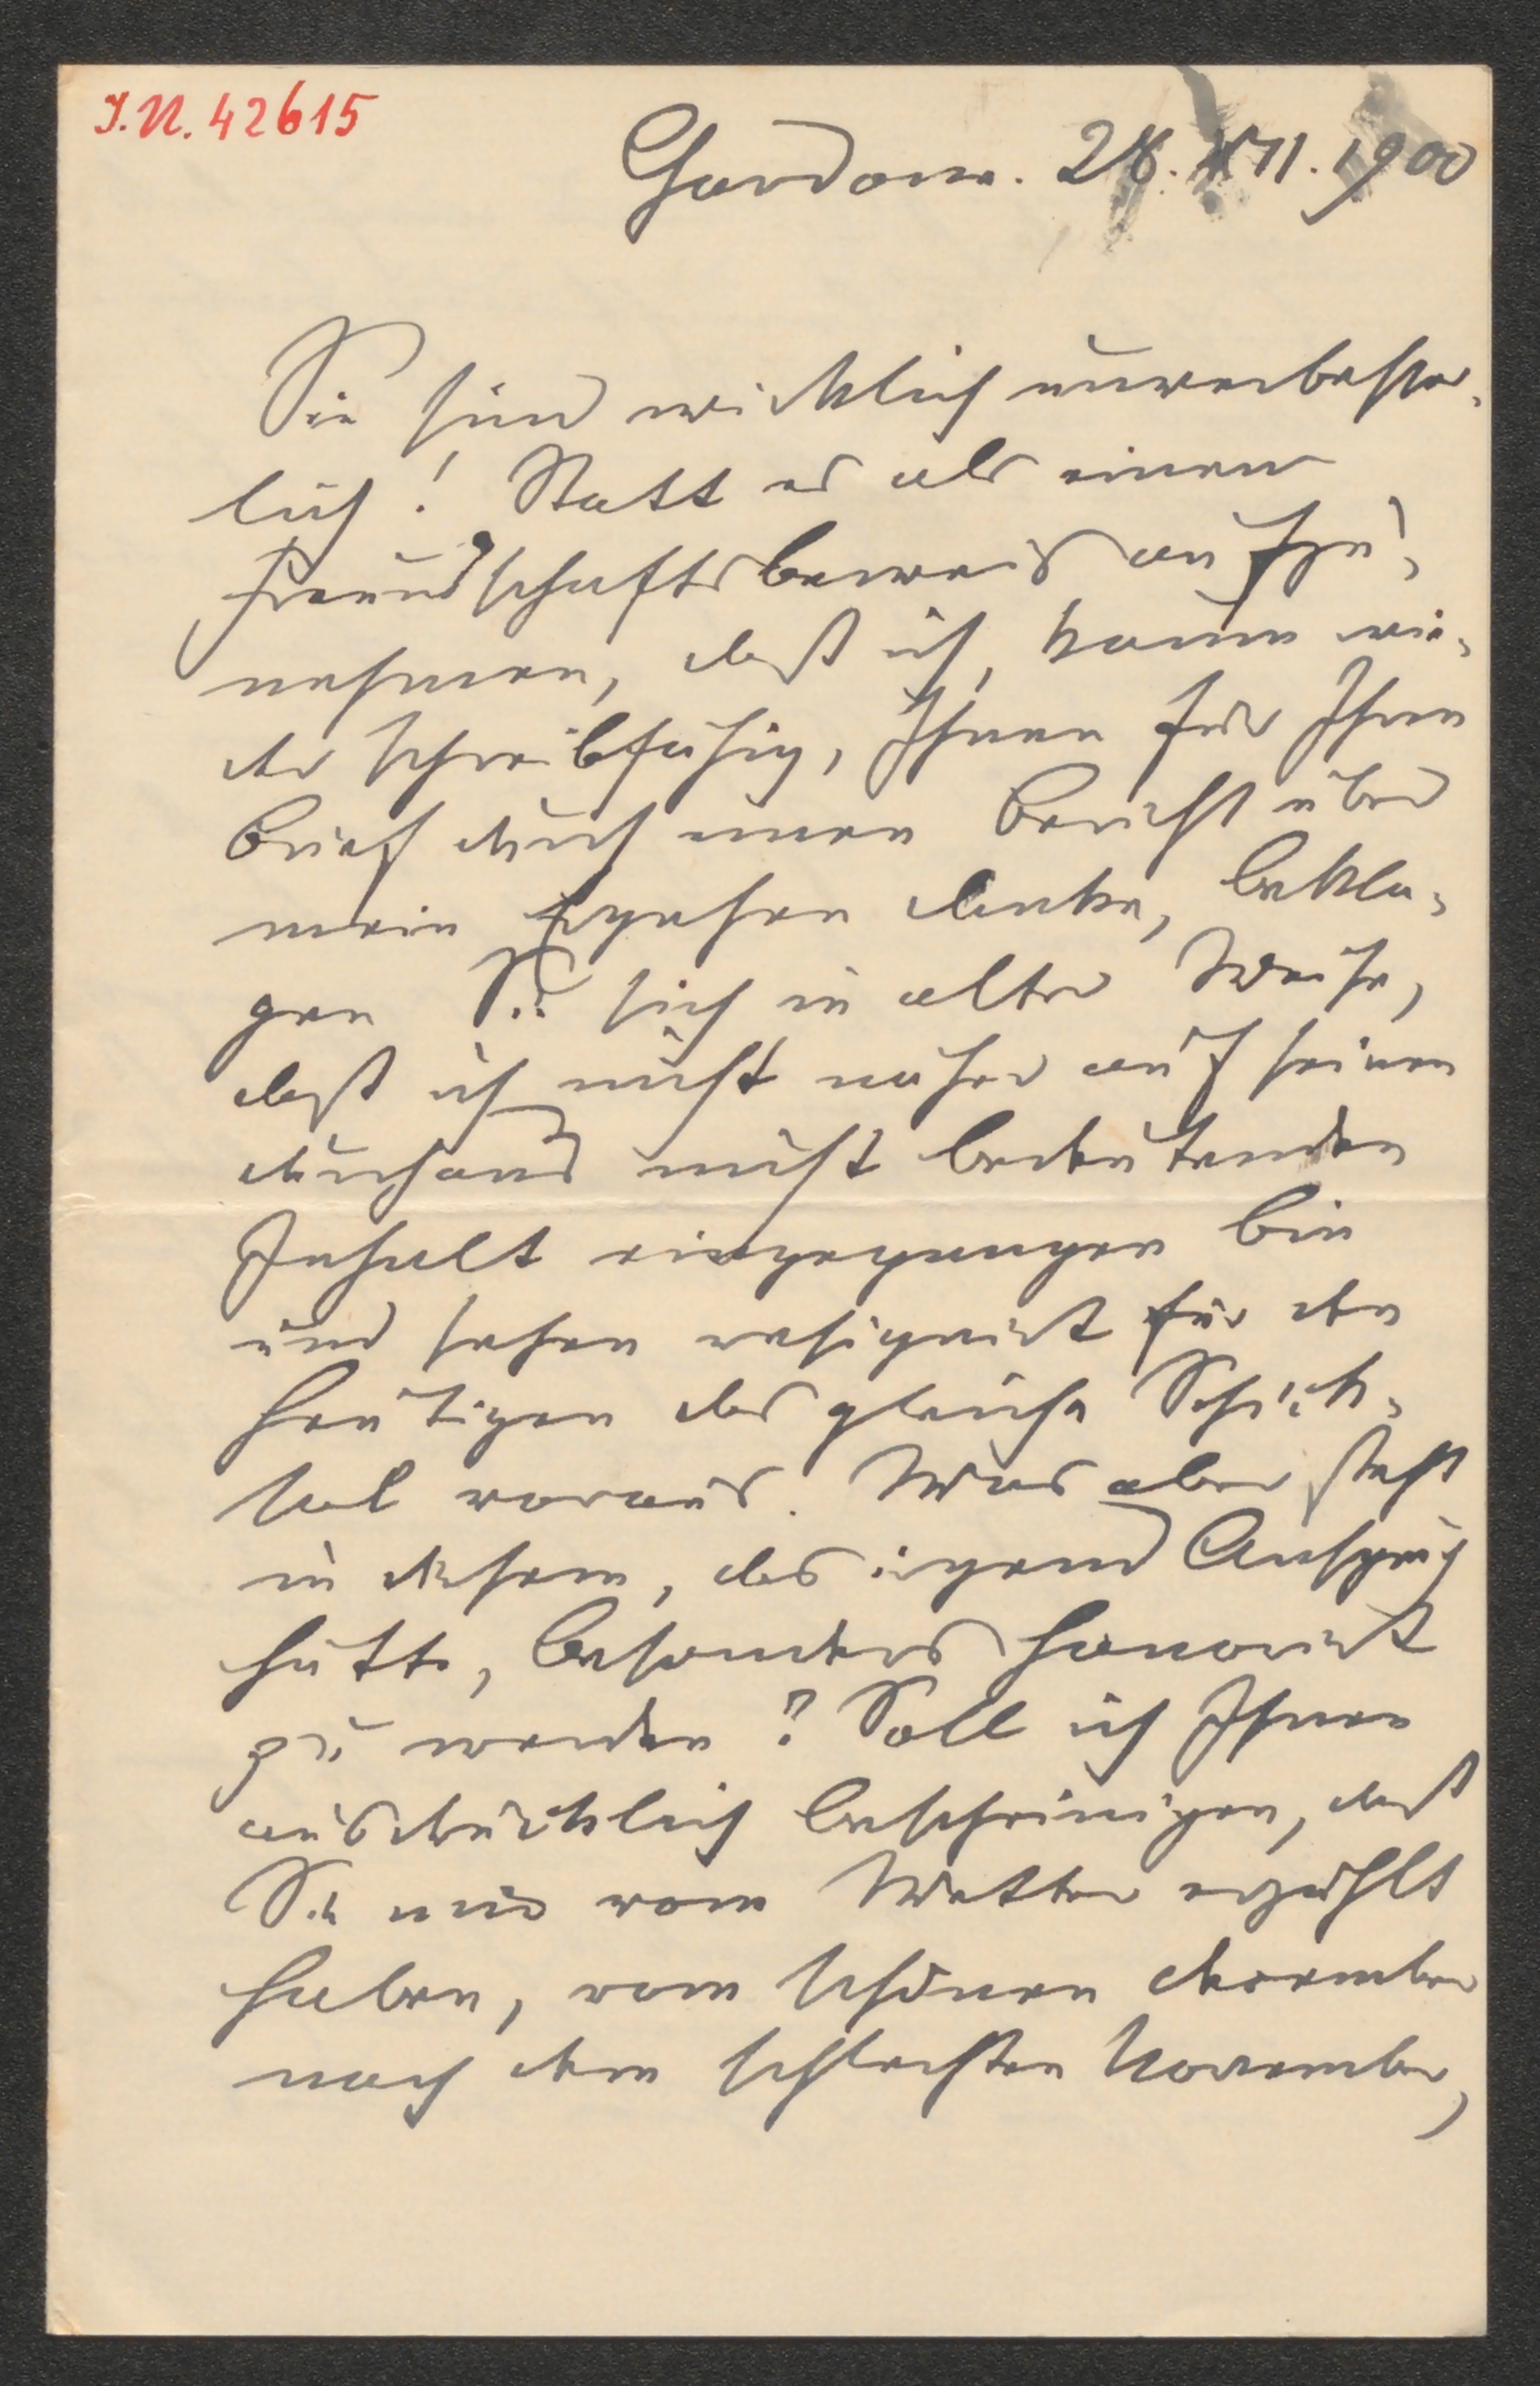 I.N. 42615
Gardone. 28. XII. 1900
Sie sind wirklich unverbesser-
lich! Statt es als einen
Freundschaftsbeweis aufzu-
nehmen, daß ich, kaum wie-
der schreibfähig, Ihnen für Ihren
Brief durch einen Bericht über
mein Ergehen danke, bekla-
gen Sie sich in alter Weise,
daß ich nicht näher auf seinen
durchaus nicht bedeutenden
Inhalt eingegangen bin
und sehen resignirt für den
heutigen das gleiche Schick-
sal voraus. Was aber steht
in diesem, das irgend Anspruch
hätte, besonders honorirt
zu werden? Soll ich Ihnen
ausdrücklich bescheinigen, daß
Sie mir vom Wetter erzählt
haben, vom schönen Dezember
nach dem schlechten November,